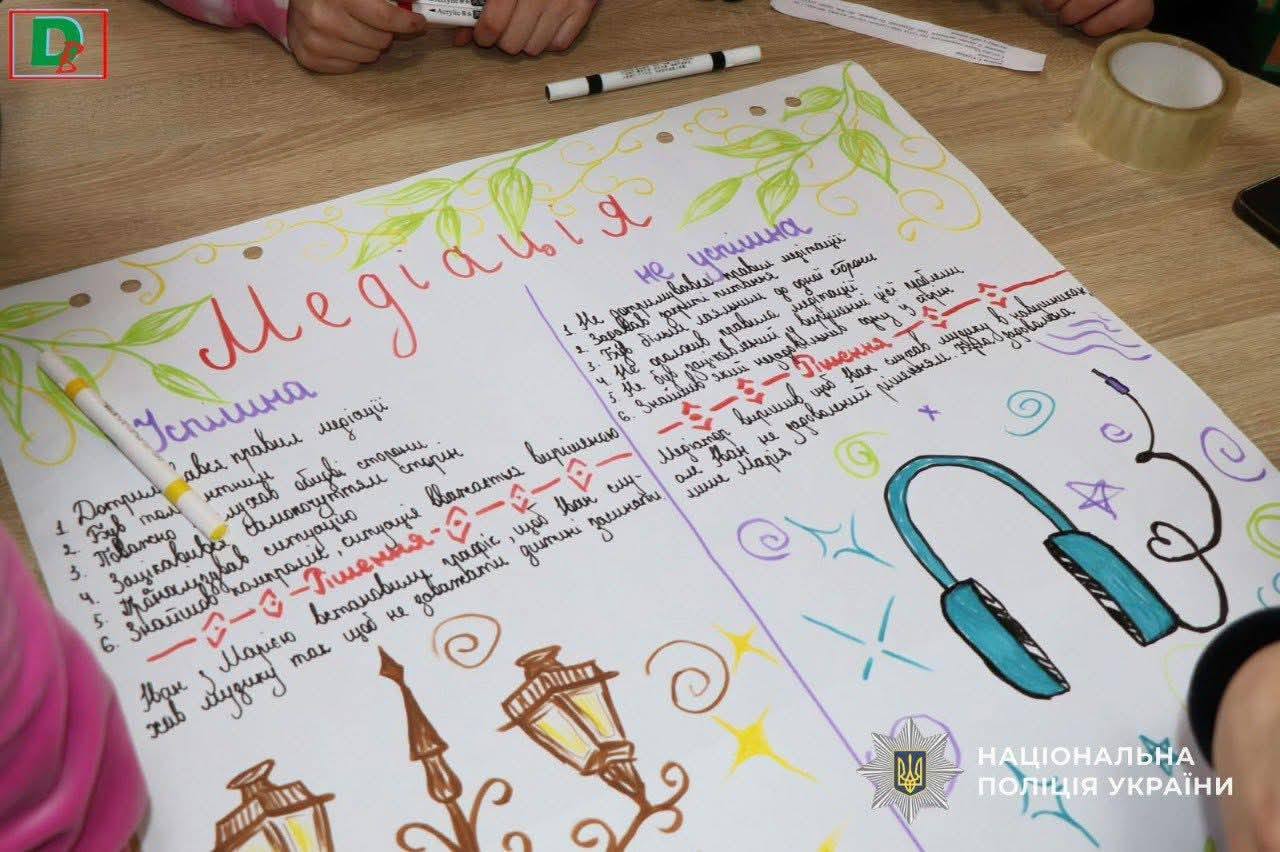 DB
Медіація
Успішна
1. правил медіації
2. Був
3. Поважно слухав обидві сторони
4. Заціковився самопочуттям сторін
5. Проаналузував ситуацію
6. Знайшов компроміс, ситуація вважається вирішеною
Рішення
Іван з Марією встановили графіс, щоб Іван слу-
хав музику так щоб не заважати дитині засинати
не успішна
1. Не дотримувався правил медітації
2. Задавав закриті питання
3. Був більш лагідним до одної сторони
4. Не правила медітації
5. Не був у вирішині цієї проблеми
6. Знайшов який одну з сторін
Рішення
Медіатор вирішив щоб Іван слухав музику в навушниках
але Іван не задоволений рішенням, пара задоволена
лише Марія
НАЦІОНАЛЬНА
ПОЛІЦІЯ УКРАЇНИ